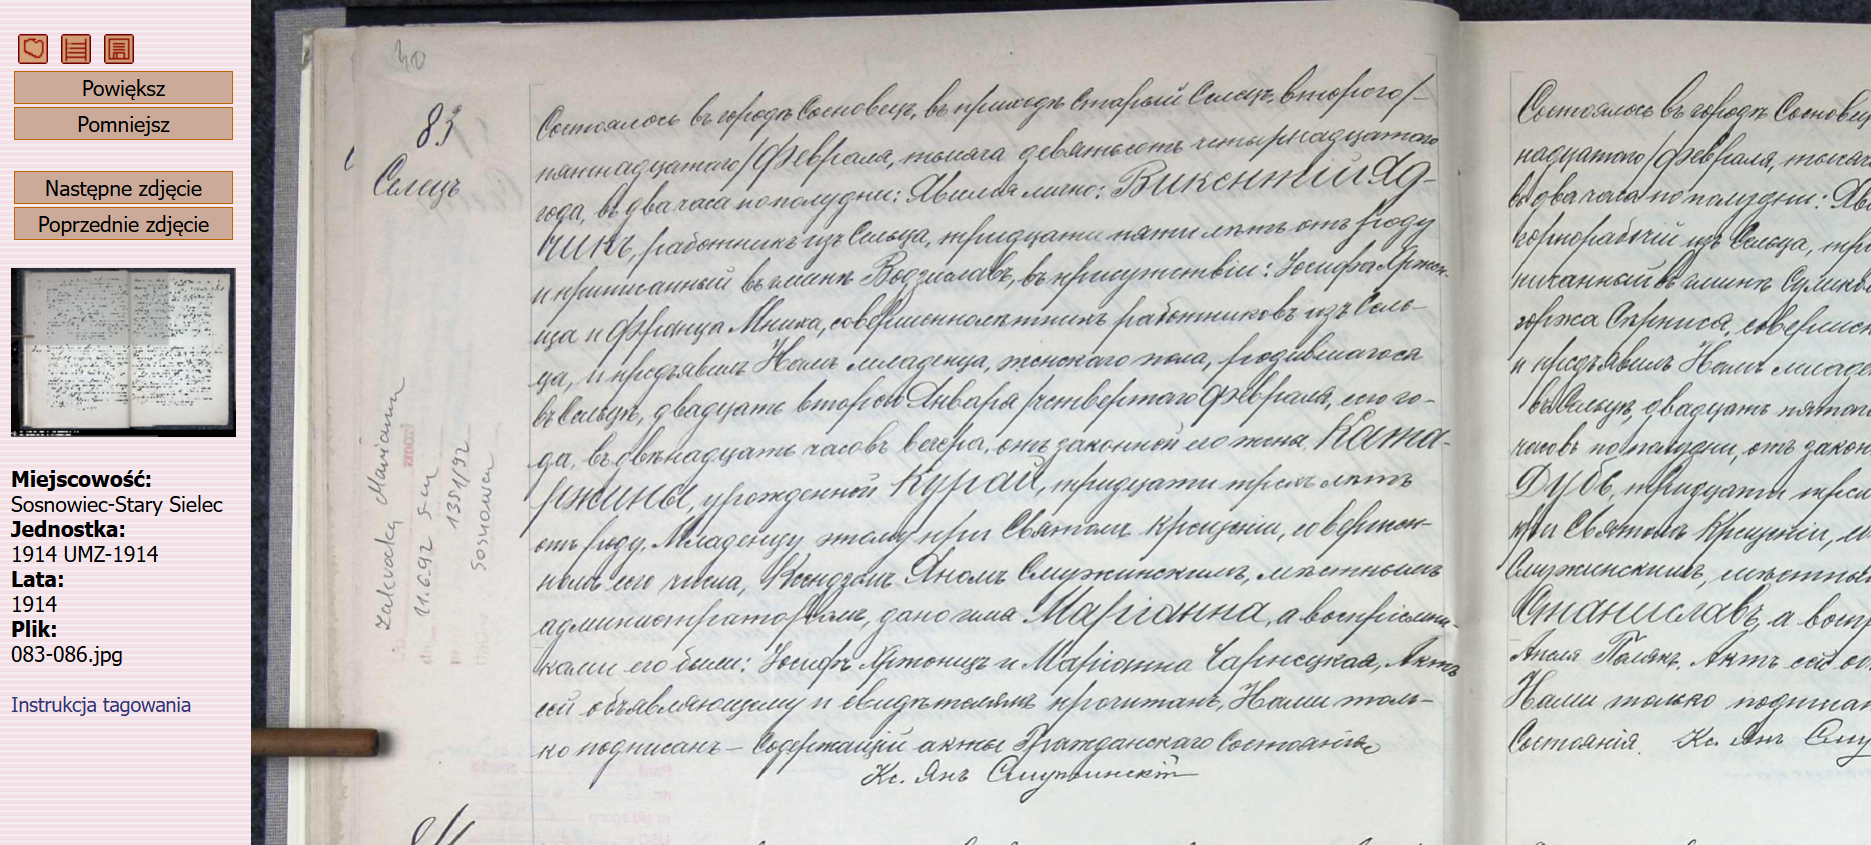 Powiększ
Pomniejsz
Następne zdjęcie
Poprzednie zdjęcie
Miejscowość:
Sosnowiec-Stary Sielec
Jednostka:
1914 UMZ-1914
Lata:
1914
Plik:
083-086.jpg
Instrukcja tagowania
40
83
Селецъ
Состоялось въ городѣ Сосновецъ, въ приходѣ Старый Селецъ, второго/
пятнадцатого/Февраля, тысяча девятьсотъ четырнадцатого
года, въ два часа пополудни: Явился лично: Викентій Яд-
чикъ, работникъ изъ Сельца, тридцати пяти лѣтъ отъ роду
и приписанный въ гминѣ Водзиславъ, въ присутствіи: Іосифа
ца и Франца Мниха, совершеннолѣтнихъ работниковъ изъ Сель-
ца, и предъявилъ Намъ младенца, женскаго пола, родившагося
въ Сельцѣ, двадцать второго Января/четвертаго Февраля, сего го-
да, въ двѣнадцать часовъ вечера, отъ законной его жены Ката-
ржины, урожденной Кургай, тридцати трехъ лѣтъ
отъ роду. Младенцу этому при Святомъ Крещеніи, совершен-
номъ сего числа, Ксендзомъ Яномъ Смужинскимъ, мѣстнымъ
администраторомъ, дано имя Маріанна, а воспріемни-
ками его были: Іосифъ и Маріанна Чарнецкая, Актъ
сей объявляющему и свидѣтелямъ прочитанъ, Нами толь-
ко подписанъ – Содержащій акты Гражданскаго Состоянія
Кс. Янъ Смужинскій
Zalewską Marianna
11.6.92
1351/92
Sosnowiec
Состоялось въ городѣ Сосновец
надцатого/Февраля, тысяч
въ два часа по полудни: Яв
горнорабочій изъ Сельца, тр
писанный въ гминѣ
и предъявилъ Намъ младе
въ Сельцѣ, двадцать пятаг
часовъ по полудни, отъ закон
Дубъ, тридцати трех
при Святомъ Крещеніи, со
Смужинскимъ, мѣстны
Станиславъ, а восп
Полякъ. Актъ сей об
Нами только подписан
Состоянія. Кс. Янъ Сму
84